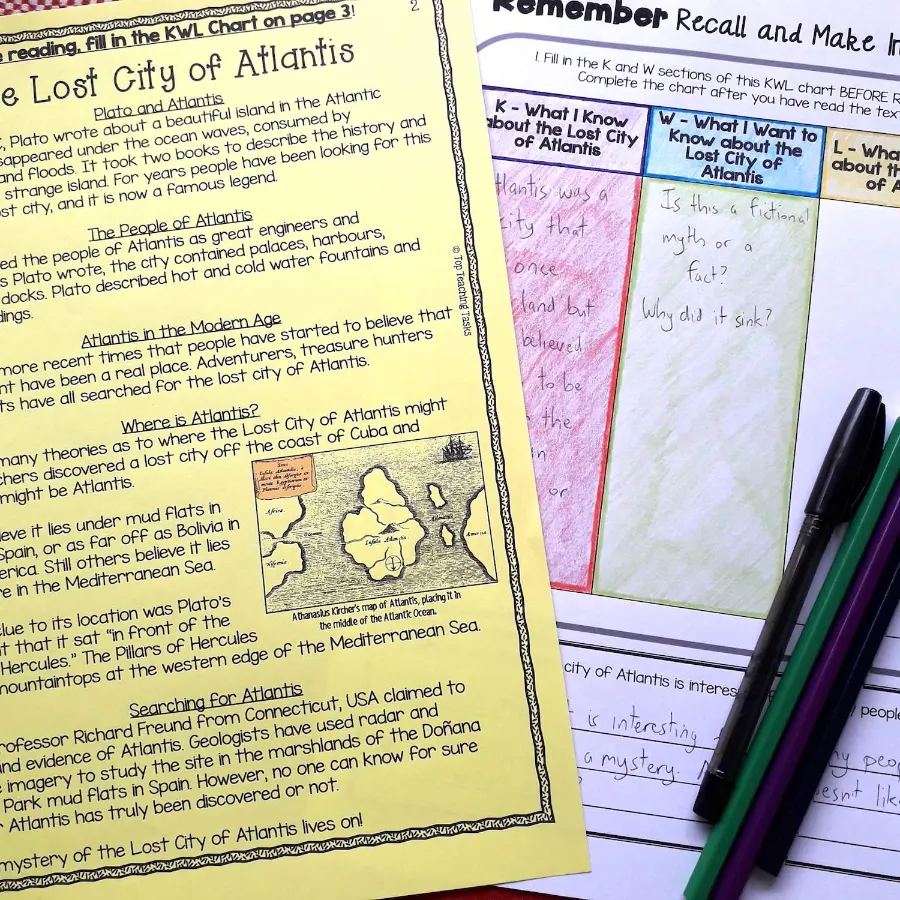 2
e reading, fill in the KWL Chart on page 3!
e Lost City of Atlantis
Plato and Atlantis
, Plato wrote about a beautiful island in the Atlantic
sappeared under the ocean waves, consumed by
and floods. It took two books to describe the history and
strange island. For years people have been looking for this
ost city, and it is now a famous legend.
The People of Atlantis
ed the people of Atlantis as great engineers and
s Plato wrote, the city contained palaces, harbours,
docks. Plato described hot and cold water fountains and
dings.
Atlantis in the Modern Age
more recent times that people have started to believe that
ht have been a real place. Adventurers, treasure hunters
ts have all searched for the lost city of Atlantis.
Where is Atlantis?
many theories as to where the Lost City of Atlantis might
chers discovered a lost city off the coast of Cuba and
might be Atlantis.
ieve it lies under mud flats in
Spain, or as far off as Bolivia in
erica. Still others believe it lies
re in the Mediterranean Sea.
clue to its location was Plato's
t that it sat "in front of the
Hercules." The Pillars of Hercules
mountaintops at the western edge of the Mediterranean Sea.
Africa
Athanasius Kircher's map of Atlantis, placing it in
the middle of the Atlantic Ocean.
Searching for Atlantis
rofessor Richard Freund from Connecticut, USA claimed to
nd evidence of Atlantis. Geologists have used radar and
e imagery to study the site in the marshlands of the Doñana
Park mud flats in Spain. However, no one can know for sure
r Atlantis has truly been discovered or not.
mystery of the Lost City of Atlantis lives on!
© Top Teaching Tasks
Remember Recall and Make In
1. Fill in the K and W sections of this KWL chart BEFORE R
Complete the chart after you have read the tex
K - What I Know
about the Lost City
of Atlantis
tlantis was a
city that
once
land but
believed
to be
the
n
or
W - What I Want to
Know about the
Lost City of
Atlantis
Is this a fictional
myth or a
fact?
Why did it sink?
L - Wha
about th
of A
city of Atlantis is interes
peopl
t is interesting
ny peop
a mystery.
esn't lik